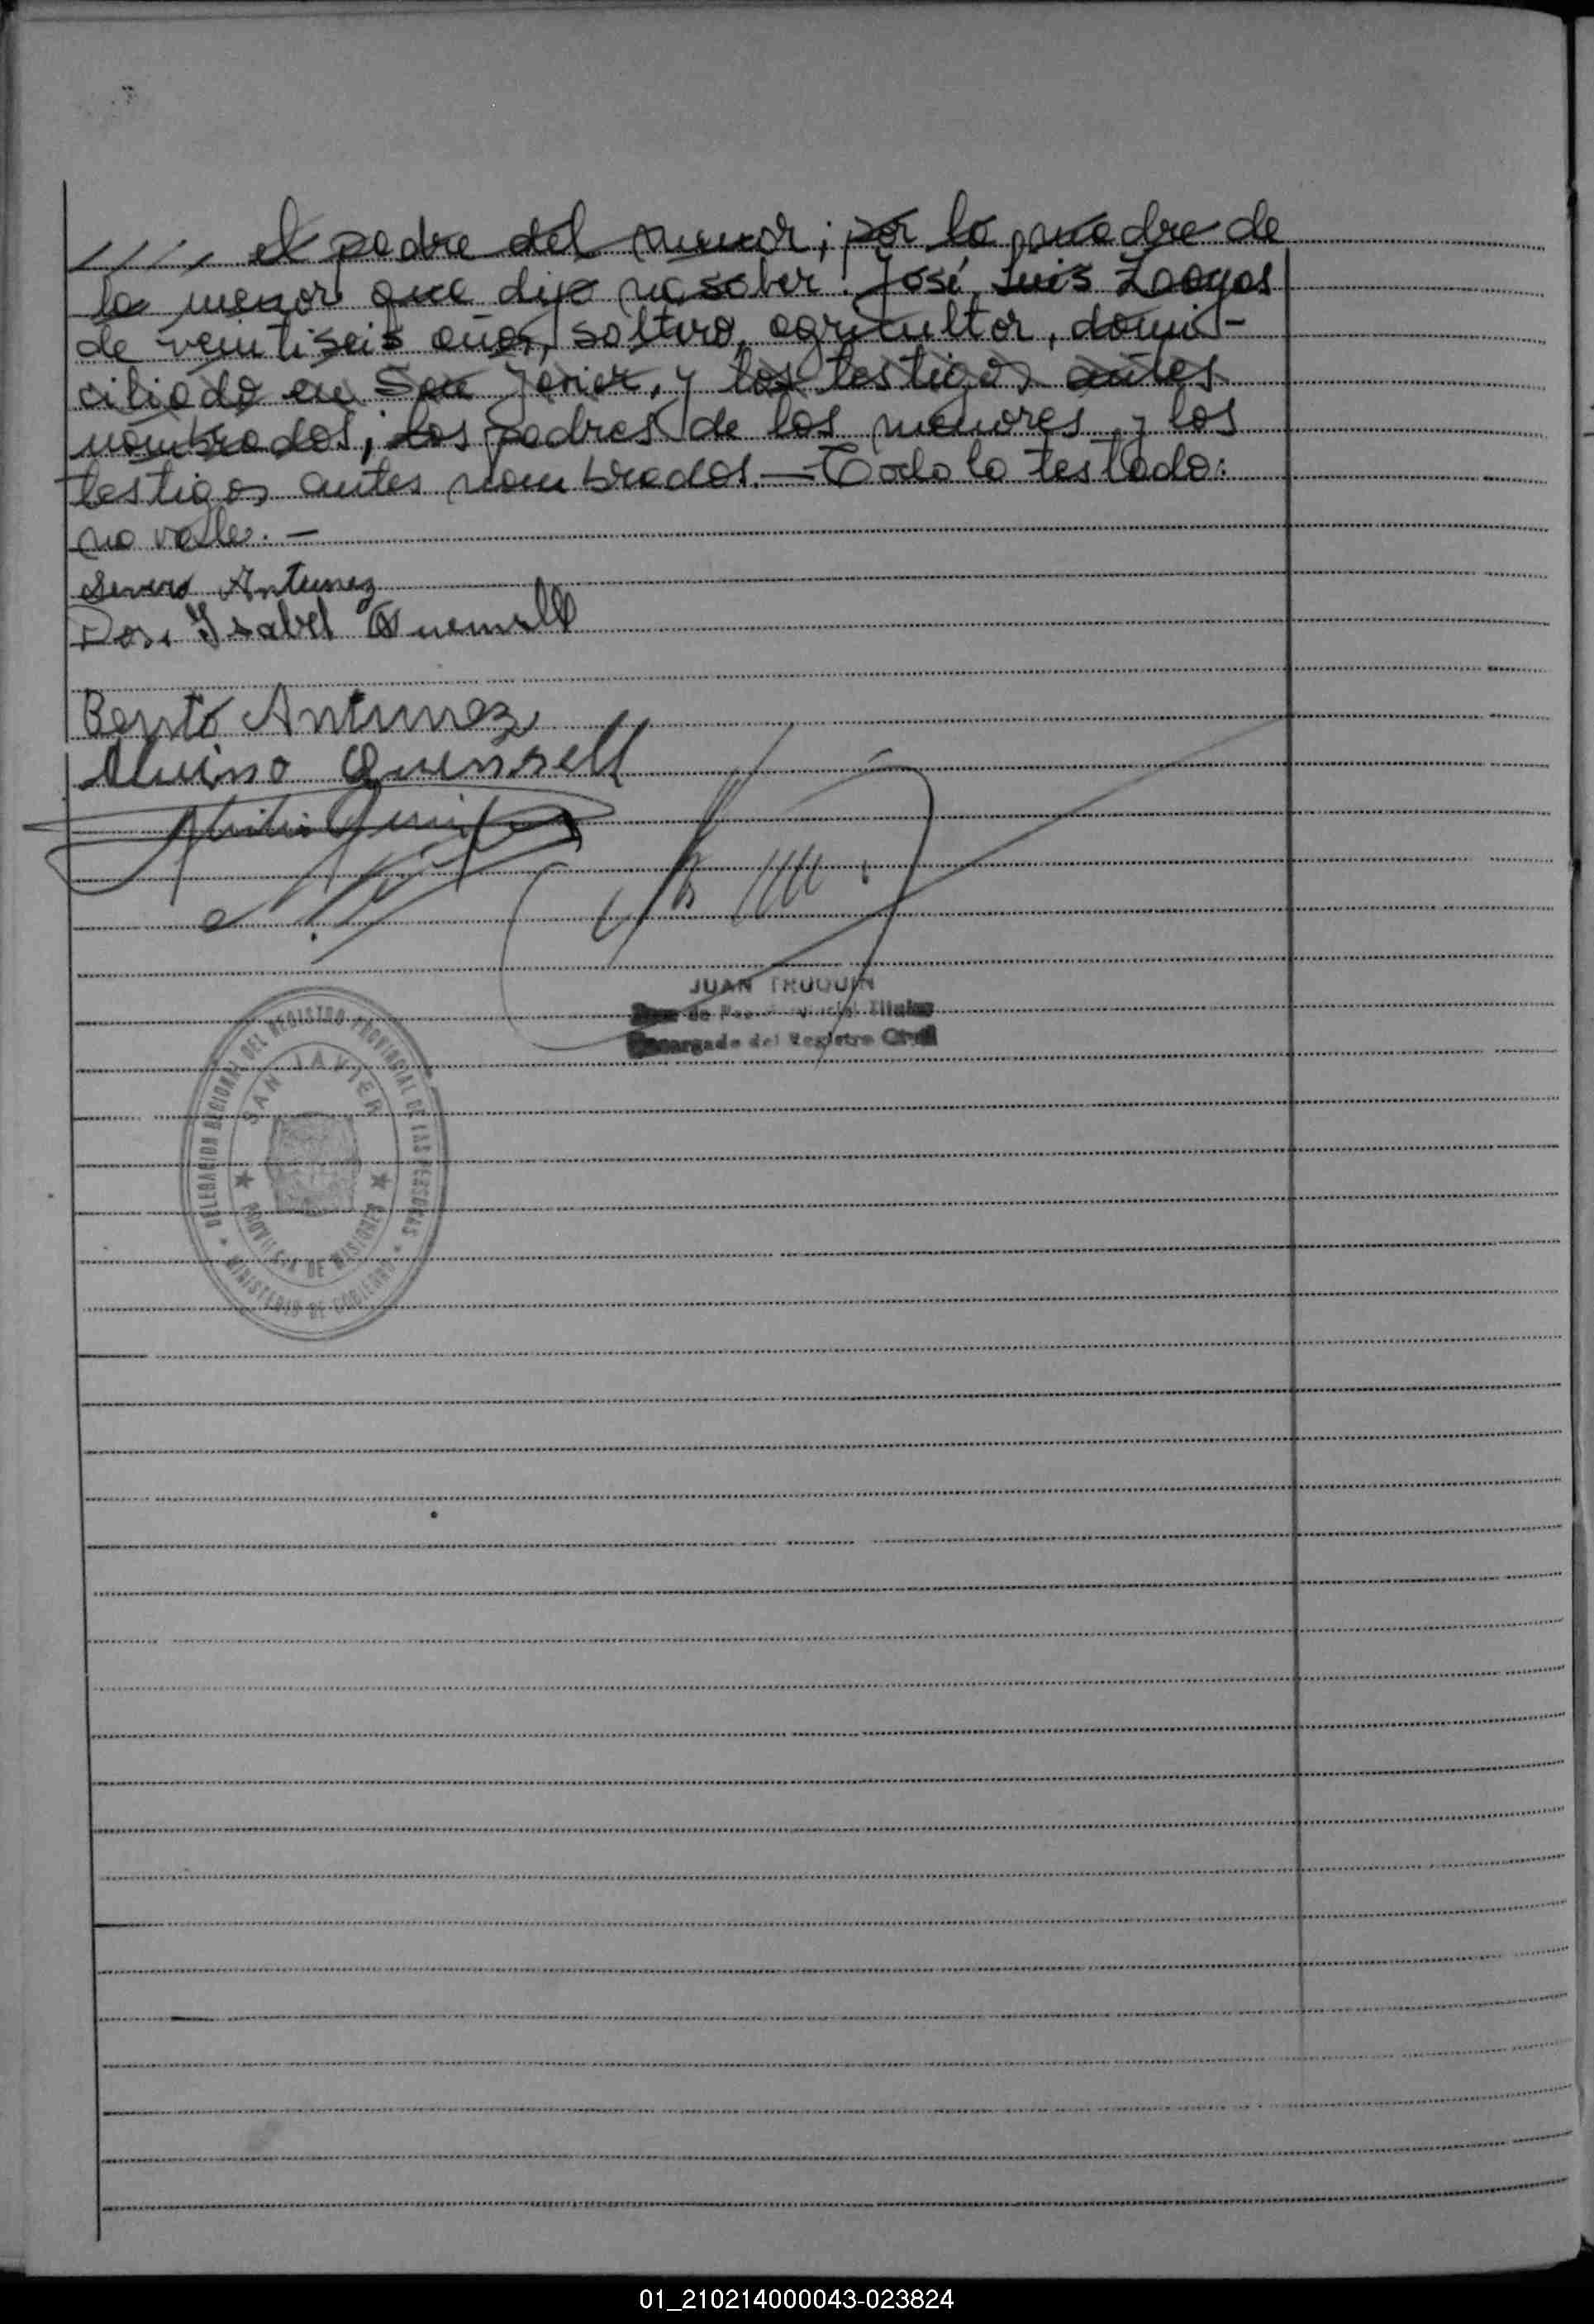 //// el padre del menor; por la madre de
la menor que dijo no saber: José Luis
de veintiseis años, soltero, agricultor, domi-
ciliado en San Javier, y los testigos antes
nombrados; los padres de los menores y los
testigos antes nombrados.— Todo lo testado:
no vale. —
Severo Antunez
Isabel
Bento Antunez
JUAN TRUQUIN
Juez de Paz
Encargado del Registro Civil
DELEGACION REGIONAL DEL REGISTRO PROVINCIAL DE LAS PERSONAS
SAN JAVIER
PROVINCIA DE MISIONES
MINISTERIO DE GOBIERNO
01_210214000043-023824